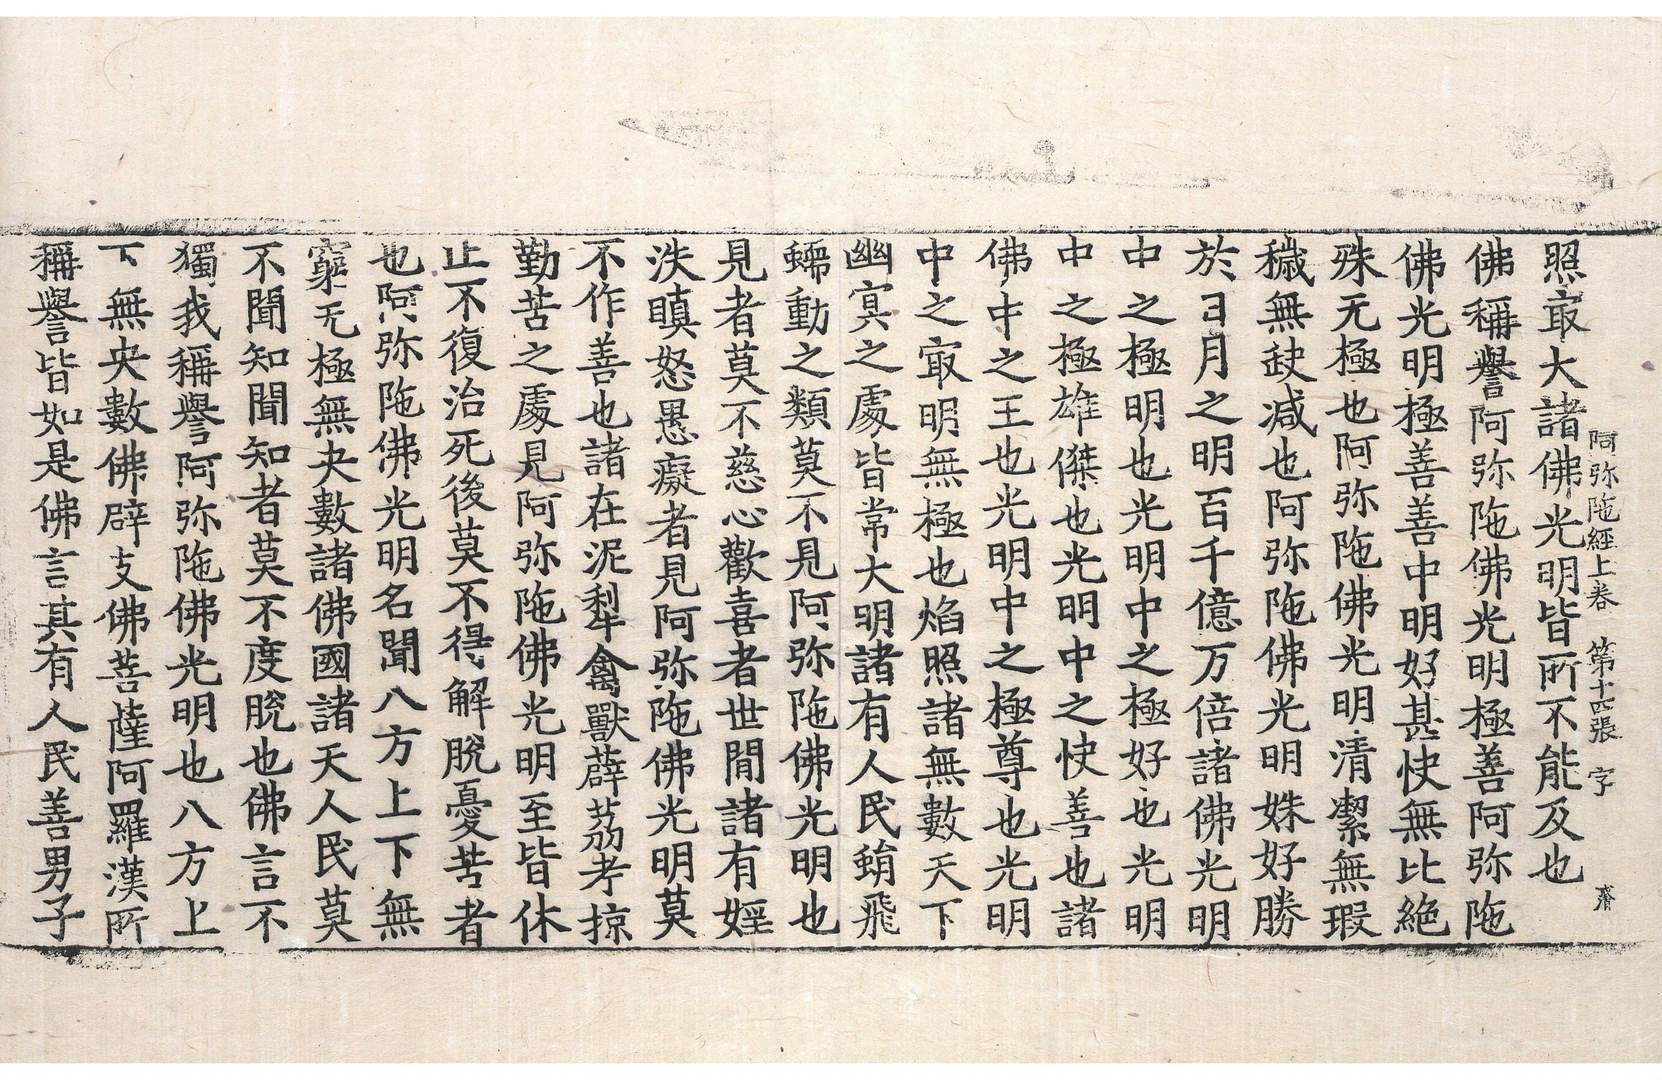 阿弥陁經上卷　第十四張　字
照㝡大諸佛光明皆所不能及也
佛稱譽阿弥陁佛光明極善阿弥陁
佛光明極善善中明好甚快無比絶
殊无極也阿弥陁佛光明清潔無瑕
穢無缺减也阿弥陁佛光明姝好勝
於日月之明百千億万倍諸佛光明
中之極明也光明中之極好也光明
中之極雄傑也光明中之快善也諸
佛中之王也光明中之極尊也光明
中之㝡明無極也焰照諸無數天下
幽冥之處皆常大明諸有人民蜎飛
蝡動之類莫不見阿弥陁佛光明也
見者莫不慈心歡喜者世閒諸有婬
泆瞋怒愚癡者見阿弥陁佛光明莫
不作善也諸在泥犁禽獸薜荔考掠
勤苦之處見阿弥陁佛光明至皆休
止不復治死後莫不得解脫憂苦者
也阿弥陁佛光明名聞八方上下無
窮无極無央數諸佛國諸天人民莫
不聞知聞知者莫不度脫也佛言不
獨我稱譽阿弥陁佛光明也八方上
下無央數佛辟支佛菩薩阿羅漢所
稱譽皆如是佛言其有人民善男子